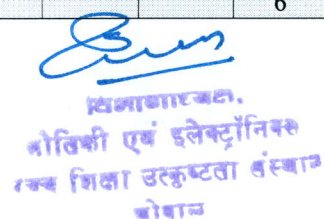 6
विभागाध्यक्ष,
भौतिकी एवं इलेक्ट्रॉनिक्स
उच्च शिक्षा उत्कृष्टता संस्थान
भोपाल